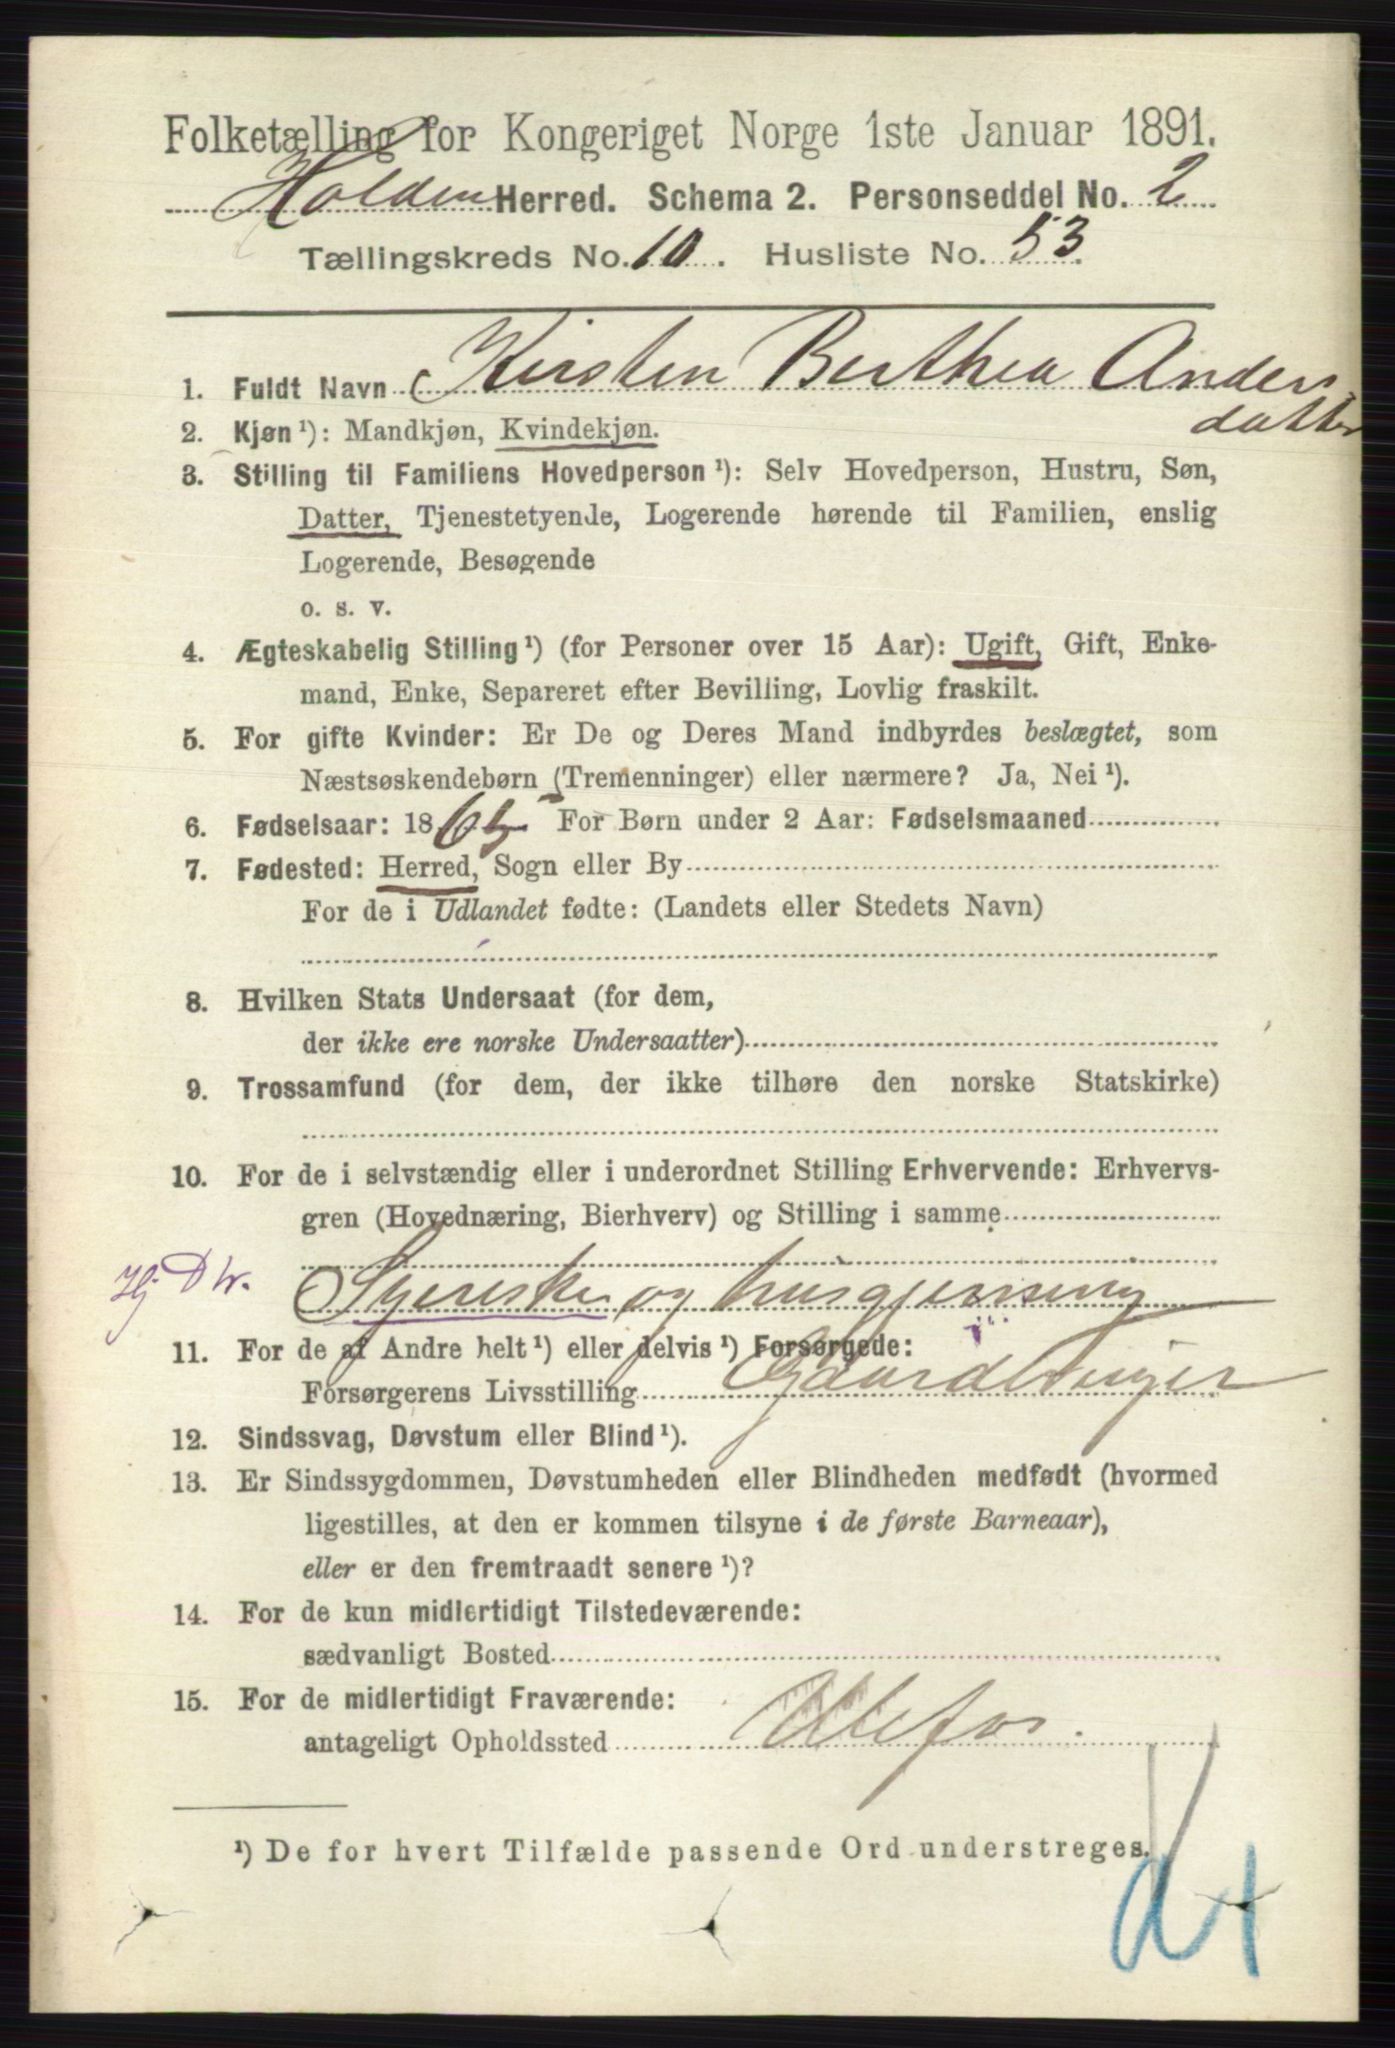 Folketælling for Kongeriget Norge 1ste Januar 1891.
Holden Herred. Schema 2. Personseddel No. 2
Tællingskreds No. 10. Husliste No. 53.
1. Fuldt Navn Kirsten Berthea Anders
datter
2. Kjøn ¹): Mandkjøn, Kvindekjøn.
3. Stilling til Familiens Hovedperson ¹): Selv Hovedperson, Hustru, Søn,
Datter, Tjenestetyende, Logerende hørende til Familien, enslig
Logerende, Besøgende
o. s. v.
4. Ægteskabelig Stilling ¹) (for Personer over 15 Aar): Ugift, Gift, Enke-
mand, Enke, Separeret efter Bevilling, Lovlig fraskilt.
5. For gifte Kvinder: Er De og Deres Mand indbyrdes beslægtet, som
Næstsøskendebørn (Tremenninger) eller nærmere? Ja, Nei ¹).
6. Fødselsaar: 1865 For Børn under 2 Aar: Fødselsmaaned
7. Fødested: Herred, Sogn eller By
For de i Udlandet fødte: (Landets eller Stedets Navn)
8. Hvilken Stats Undersaat (for dem,
der ikke ere norske Undersaatter)
9. Trossamfund (for dem, der ikke tilhøre den norske Statskirke)
10. For de i selvstændig eller i underordnet Stilling Erhvervende: Erhvervs-
gren (Hovednæring, Bierhverv) og Stilling i samme
Syerske og husgjerning
11. For de af Andre helt ¹) eller delvis ¹) Forsørgede:
Forsørgerens Livsstilling Gaardbruger
12. Sindssvag, Døvstum eller Blind ¹).
13. Er Sindssygdommen, Døvstumheden eller Blindheden medfødt (hvormed
ligestilles, at den er kommen tilsyne i de første Barneaar),
eller er den fremtraadt senere ¹)?
14. For de kun midlertidigt Tilstedeværende:
sædvanligt Bosted
15. For de midlertidigt Fraværende:
antageligt Opholdssted Ulefos.
¹) De for hvert Tilfælde passende Ord understreges.